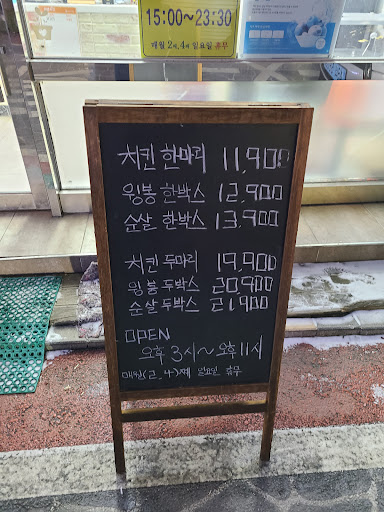 15:00~23:30
매월 2째, 4째 일요일 휴무
치킨 한마리 11,900
윙봉 한박스 12,900
순살 한박스 13,900
치킨 두마리 19,900
윙봉 두박스 20,900
순살 두박스 21,900
OPEN
오후 3시~오후 11시
매월(2, 4)째 일요일 휴무